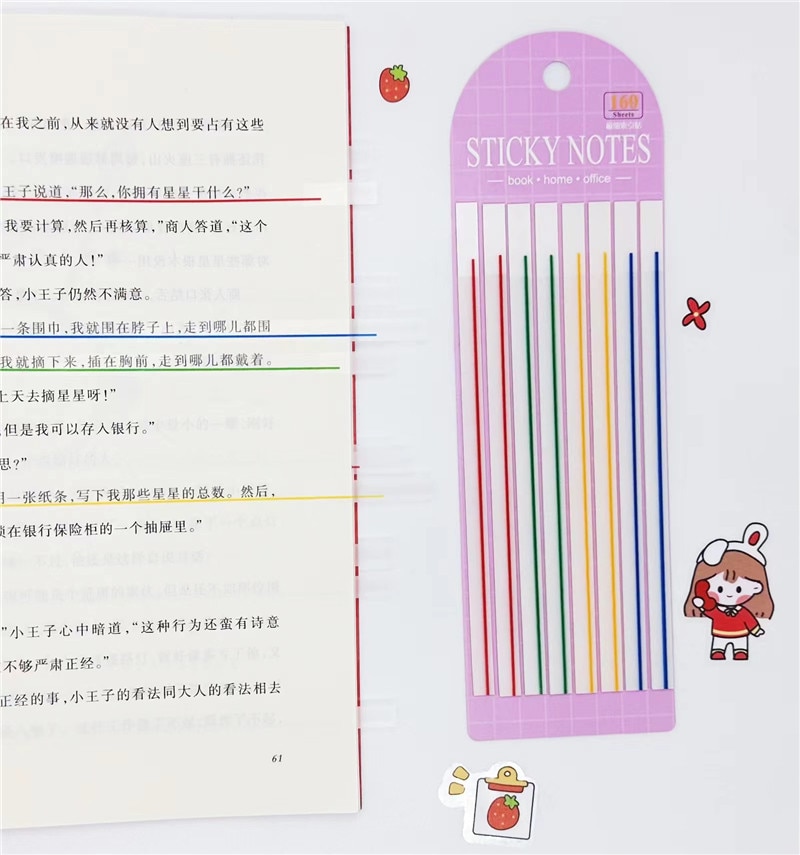 在我之前，从来就没有人想到要占有这些
王子说道，“那么，你拥有星星干什么？”
我要计算，然后再核算，”商人答道，“这个
严肃认真的人！”
答，小王子仍然不满意。
一条围巾，我就围在脖子上，走到哪儿都围
我就摘下来，插在胸前，走到哪儿都戴着。
上天去摘星星呀！”
但是我可以存入银行。”
思？”
一张纸条，写下我那些星星的总数。然后，
锁在银行保险柜的一个抽屉里。”
”小王子心中暗道，“这种行为还蛮有诗意
不够严肃正经。”
正经的事，小王子的看法同大人的看法相去
61
160
Sheets
STICKY NOTES
book • home • office